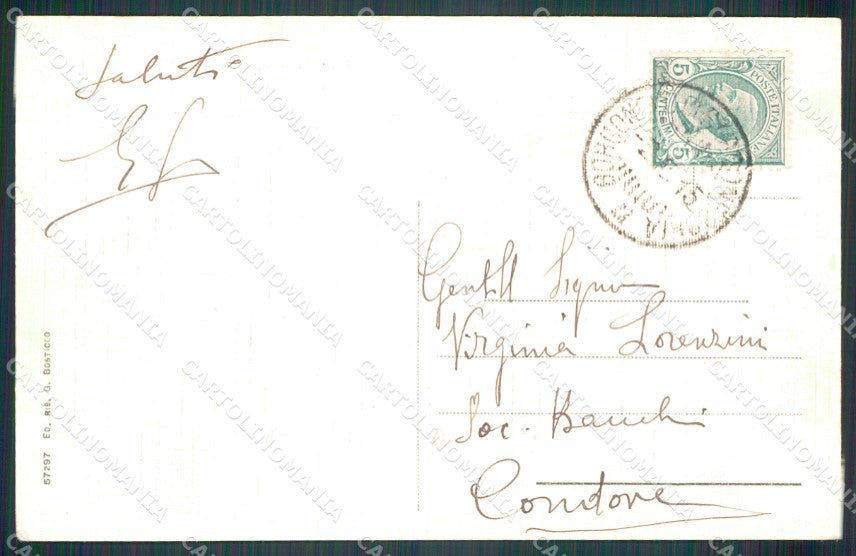 Saluti
POSTE ITALIANE
CENTESIMI
5
5
15
Gentill Signa
Virginia Lorenzini
Soc. Bauchi
Condove
57297 ED. RIS. G. BOSTICCO
CARTOLINOMANIA